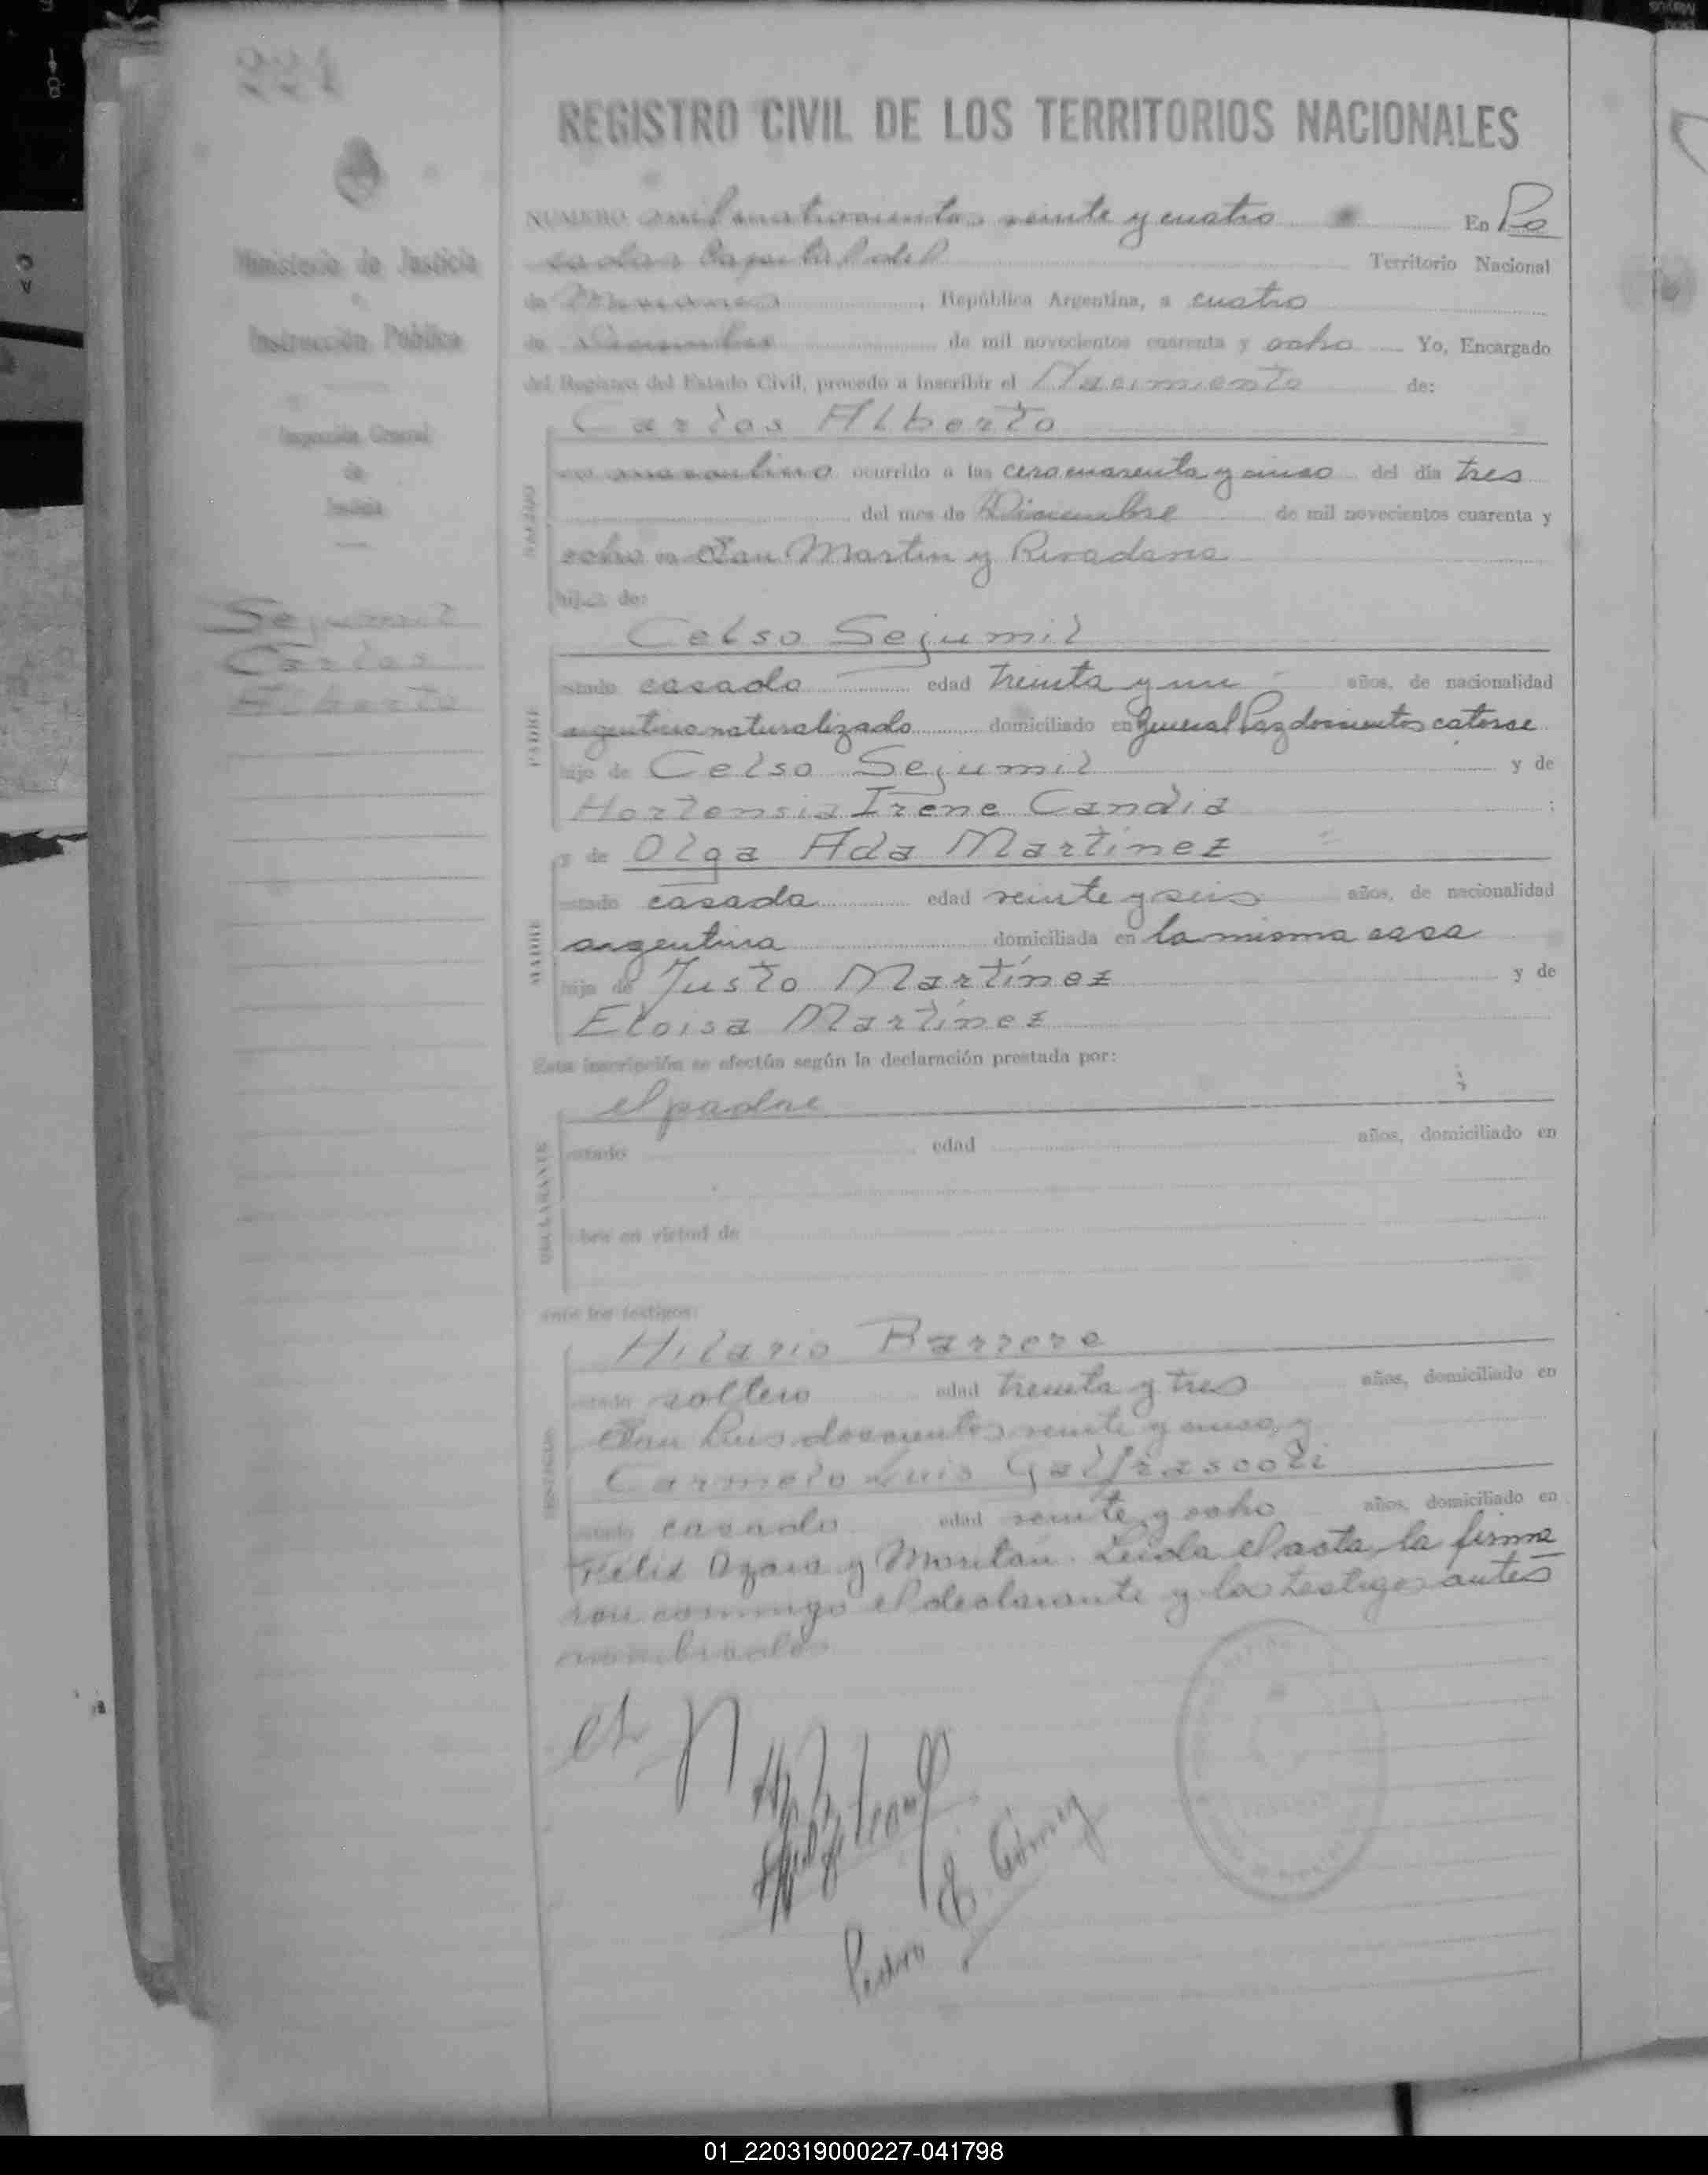 221
REGISTRO CIVIL DE LOS TERRITORIOS NACIONALES
Ministerio de Justicia
e
Instrucción Pública
Inspección General
de
Justicia
Sejumil
Carlos
Alberto
NUMERO mil cuatrocientos veinte y cuatro En Po
sadas Capital del Territorio Nacional
de Misiones, República Argentina, a cuatro
de Diciembre de mil novecientos cuarenta y ocho Yo, Encargado
del Registro del Estado Civil, procedo a inscribir el Nacimiento de:
Carlos Alberto
masculino ocurrido a las cero cuarenta y cinco del día tres
del mes de Diciembre de mil novecientos cuarenta y
ocho en San Martin y Rivadavia
hijo de:
PADRE
Celso Sejumil
estado casado edad treinta y un años, de nacionalidad
argentino naturalizado domiciliado en General Paz doscientos catorce
hijo de Celso Sejumil y de
Hortensia Irene Candia :
MADRE
y de Olga Ada Martinez
estado casada edad veinte y seis años, de nacionalidad
argentina domiciliada en la misma casa
hija de Justo Martínez y de
Eloisa Martínez
Esta inscripción se efectúa según la declaración prestada por:
DECLARANTE
el padre
estado edad años, domiciliado en
obra en virtud de
ante los testigos:
TESTIGOS
Hilario Barrere
estado soltero edad treinta y tres años, domiciliado en
San Luis doscientos veinte y cinco, y
Carmelo Luis Galfrascoli
estado casado edad veinte y ocho años, domiciliado en
Félix Azara y Moritán. Leida el acta, la firma
ron conmigo el declarante y los testigos antes
nombrados
Pedro E. Gómez
01_220319000227-041798